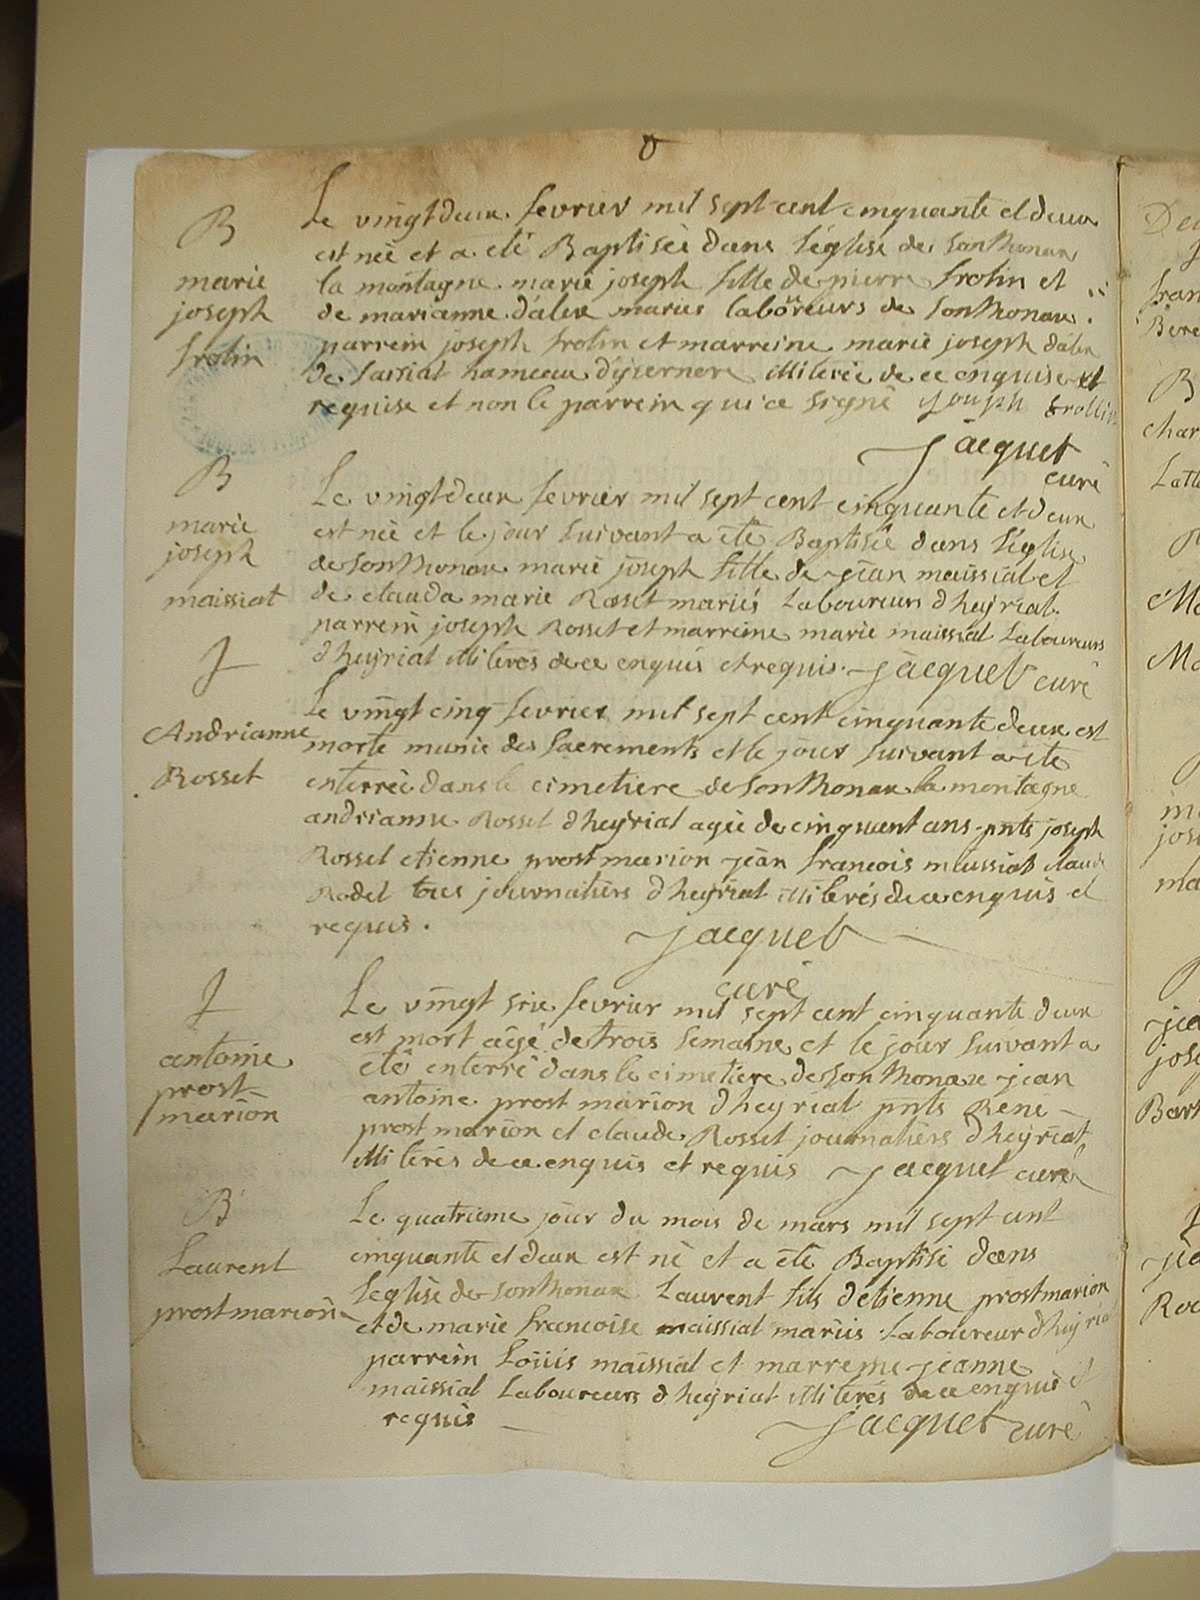 B
marie
joseph
frolin
Le vingtdeux fevrier mil sept cent cinquante et deux
est née et a eté Baptisée dans l'église de Sonthonax
la montagne marie joseph fille de pierre frolin et
de marianne d'alex mariés laboureurs de Sonthonax.
parrein joseph frolin et marreine marie joseph dalex
de hameau d'ysernore illiterée de ce enquise et
requise et non le parrein qui a signé joseph frollin
Jacquet
curé
B
marie
joseph
maissiat
Le vingtdeux fevrier mil sept cent cinquante et deux
est née et le jour suivant a eté Baptisée dans l'église
de Sonthonax marie joseph fille de jean maissiat et
de clauda marie Rosset mariés Laboureurs d'heyriat.
parrein joseph Rosset et marreine marie maissiat Laboureurs
d'heyriat illiterés de ce enquis et requis. Jacquet curé
Andrianne
Rosset
Le vingt cinq fevrier mil sept cent cinquante deux est
morte munie des sacrements et le jour suivant a ete
enterrée dans le cimetiere de Sonthonax la montagne
andrianne Rosset d'heyriat agée de cinquant ans pnts joseph
Rosset etienne prost marion jean francois maissiat claude
Rodet tous journaliers d'heyriat illiterés de ce enquis et
requis.
Jacquet
curé
antoine
prost
marion
Le vingt six fevrier mil sept cent cinquante deux
est mort agé de trois semaine et le jour suivant a
été enterré dans le cimetiere de Sonthonax jean
antoine prost marion d'heyriat pnts René
prost marion et claude Rosset journaliers d'heyriat
illiterés de ce enquis et requis Jacquet curé
B
Laurent
prost marion
Le quatrieme jour du mois de mars mil sept cent
cinquante et deux est né et a eté Baptisé dans
l'eglise de Sonthonax Laurent fils d'etienne prost marion
et de marie francoise maissiat mariés Laboureur d'heyriat
parrein Loüis maissiat et marreine jeanne
maissiat Laboureurs d'heyriat illiterés de ce enquis et
requis
Jacquet curé